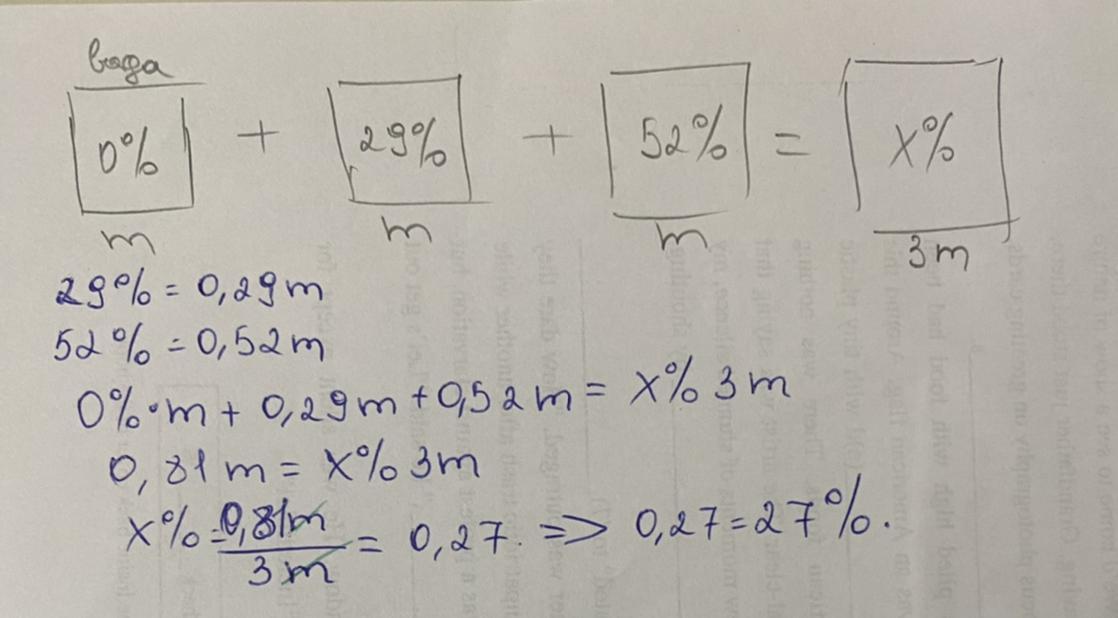 вода
0% + 29% + 52% = x%
m m m 3m
29% = 0,29m
52% = 0,52m
0%·m + 0,29m + 0,52m = x% 3m
0,81m = x% 3m
x% = 0,81m / 3m = 0,27 => 0,27 = 27%.